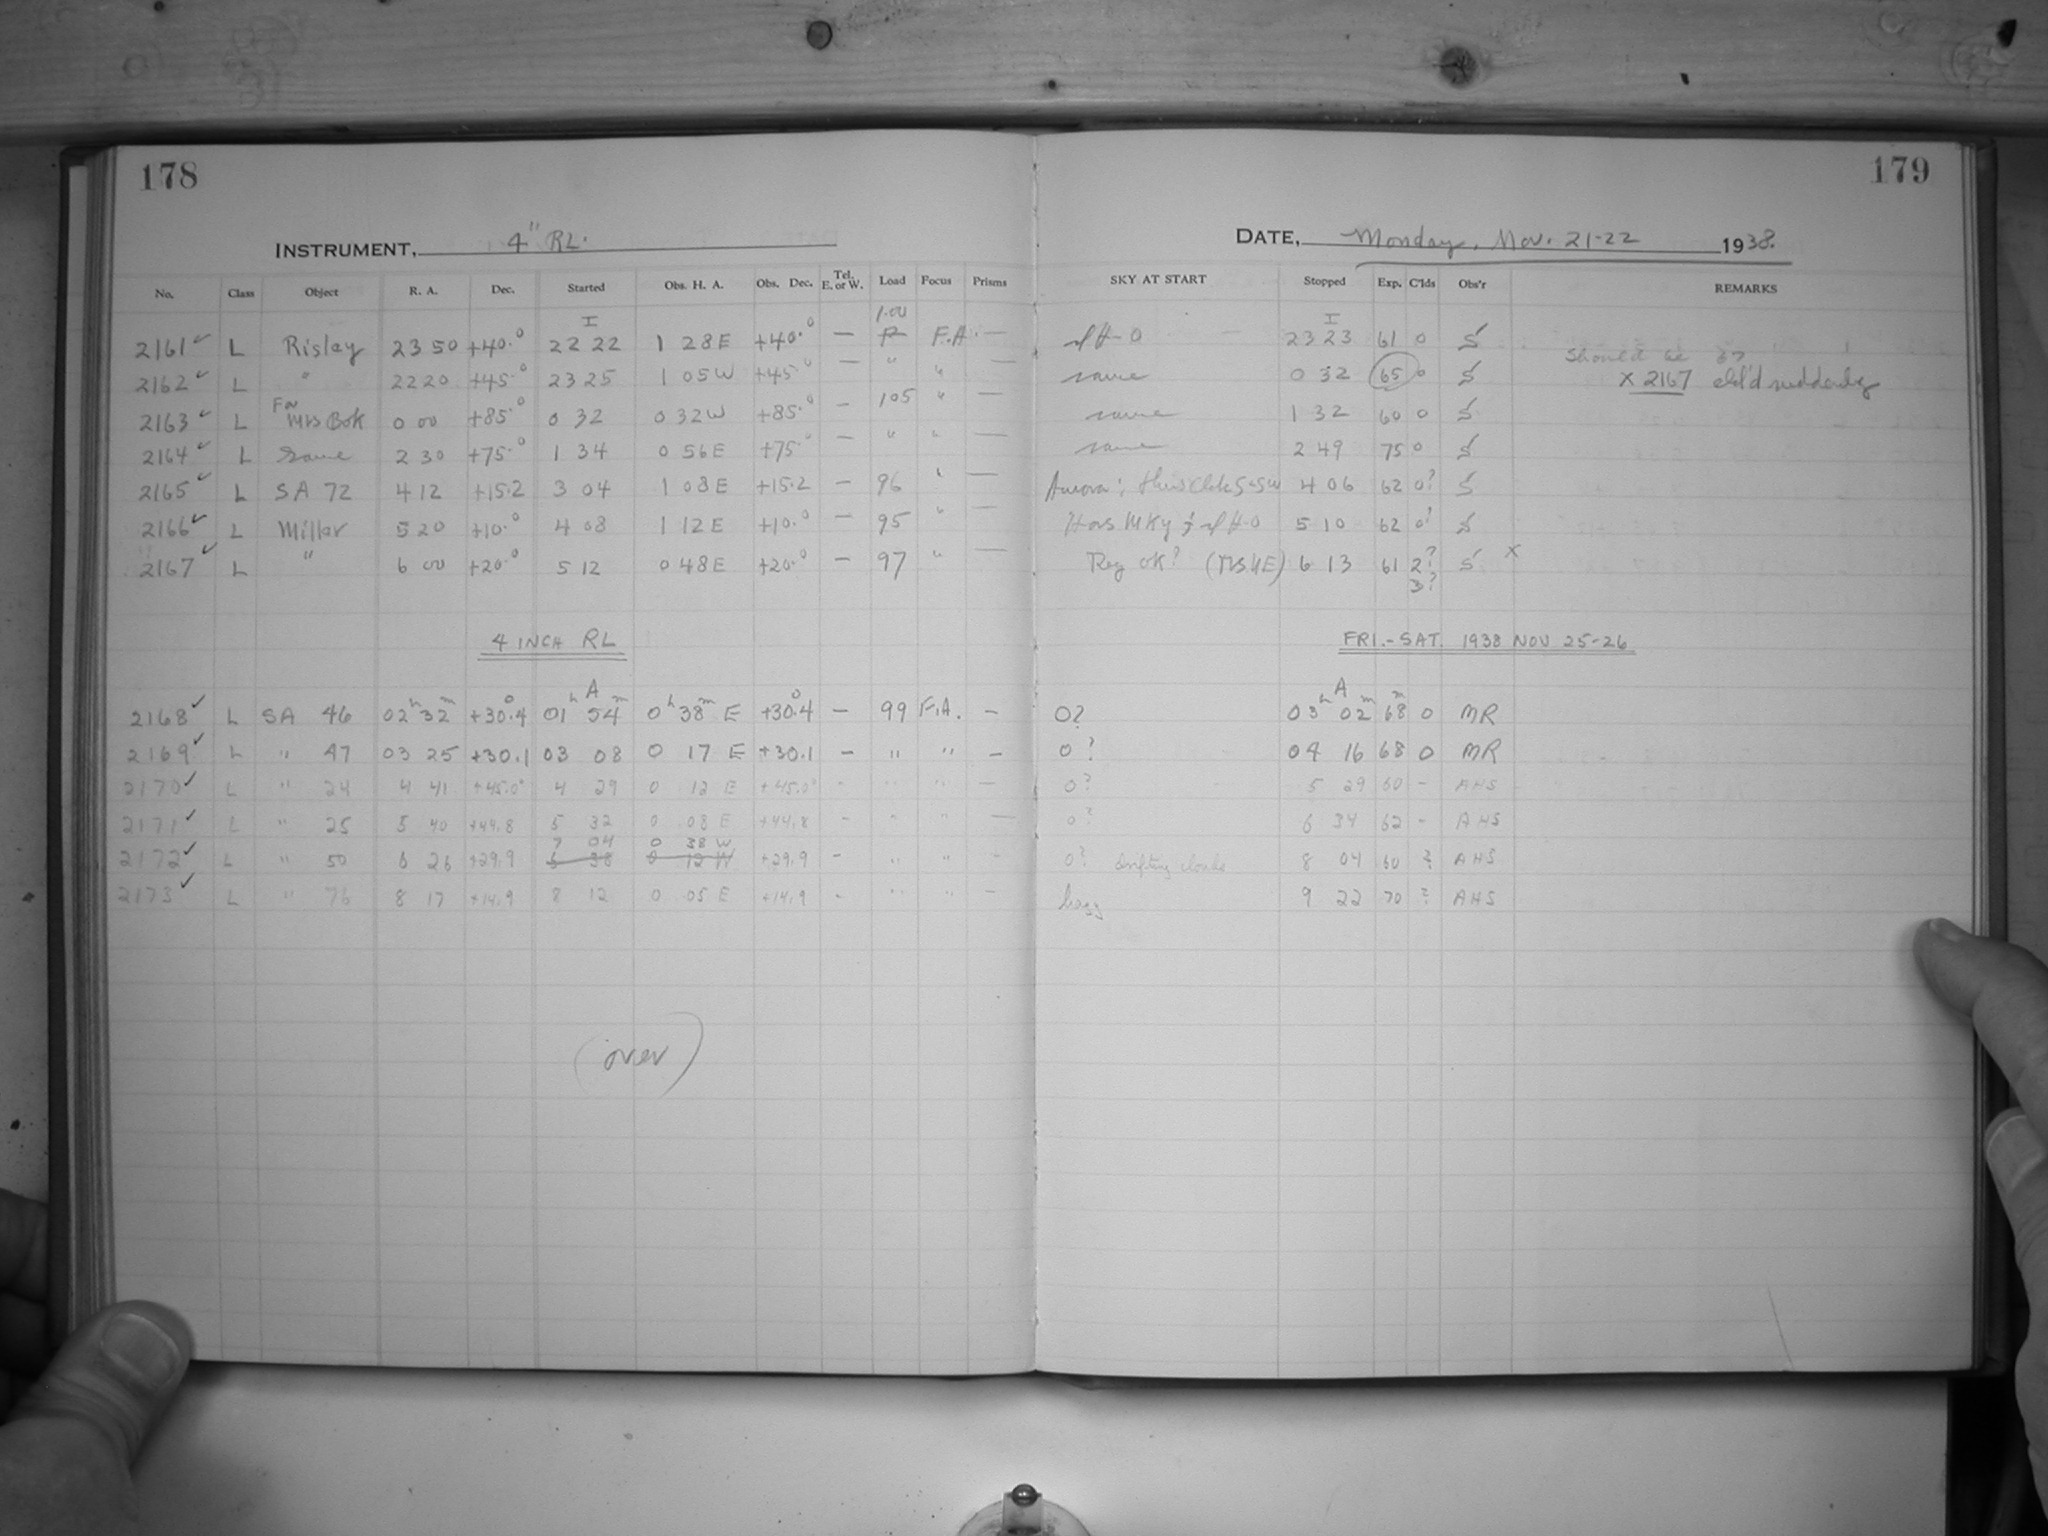 178
179
INSTRUMENT, 4" RL.
DATE, Monday, Nov. 21-22 1938.
No. Class Object R. A. Dec. Started Obs. H. A. Obs. Dec. Tel. E. or W. Load Focus Prisms SKY AT START Stopped Exp. C'lds Obs'r REMARKS
2161 ✓ L Risley 23 50 +40.0 I 22 22 1 28 E +40.0 — 1.00 F.A. — I 23 23 61 0 S
2162 ✓ L " 22 20 +45.0 23 25 1 05 W +45.0 — " " — same 0 32 65 0 S Should be 67
x 2167 cld'd suddenly
2163 ✓ L For Mrs Bok 0 00 +85.0 0 32 0 32 W +85.0 — 105 " — same 1 32 60 0 S
2164 ✓ L Same 2 30 +75.0 1 34 0 56 E +75.0 — " " — same 2 49 75 0 S
2165 ✓ L SA 72 4 12 +15.2 3 04 1 08 E +15.2 — 96 " — Aurora; S-SW 4 06 62 0? S
2166 ✓ L Miller 5 20 +10.0 4 08 1 12 E +10.0 — 95 " — Hors Mky; 5 10 62 0? S
2167 ✓ L " 6 00 +20.0 5 12 0 48 E +20.0 — 97 " — Reg ok? 6 13 61 2? 3? S x
4 INCH RL
FRI.-SAT. 1938 NOV 25-26
2168 ✓ L SA 46 02h 32m +30.4 A 01h 54m 0h 38m E +30.4 — 99 F.A. — 0? A 03h 02m 68m 0 MR
2169 ✓ L " 47 03 25 +30.1 03 08 0 17 E +30.1 — " " — 0? 04 16 68 0 MR
2170 ✓ L " 24 4 41 +45.0 4 29 0 12 E +45.0 - " " — 0? 5 29 60 - AHS
2171 ✓ L " 25 5 40 +44.8 5 32 0 08 E +44.8 - " " — 0? 6 34 62 - AHS
2172 ✓ L " 50 6 26 +29.9 7 04 0 38 W +29.9 - " " - 0? drifting clouds 8 04 60 ? AHS
2173 ✓ L " 76 8 17 +14.9 8 12 0 05 E +14.9 - " " - hazy 9 22 70 ? AHS
(over)